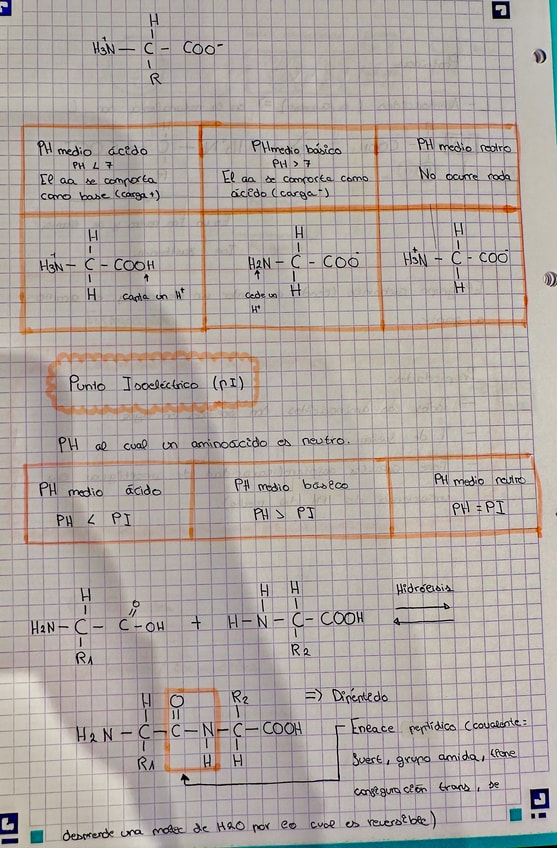 H
H3N⁺ — C — COO⁻
R
PH medio ácido
PH < 7
El aa se comporta
como base (carga+)
PH medio básico
PH > 7
El aa se comporta como
ácido (carga-)
PH medio neutro
No ocurre nada
H
H3N⁺ — C — COOH
H
capta un H⁺
H
H2N — C — COO⁻
H
cede un
H⁺
H
H3N⁺ — C — COO⁻
H
Punto Isoeléctrico (PI)
PH al cual un aminoácido es neutro.
PH medio ácido
PH < PI
PH medio baseco
PH > PI
PH medio neutro
PH = PI
H O
H2N — C — C — OH
R1
+
H H
H — N — C — COOH
R2
Hidrólisis
H O R2
H2N — C — C — N — C — COOH
R1 H H
=> Dipéptido
Enlace peptídico (covalente
fuert, grupo amida, tiene
configuración trans, se
desprende una molec de H2O por lo cual es reversible)